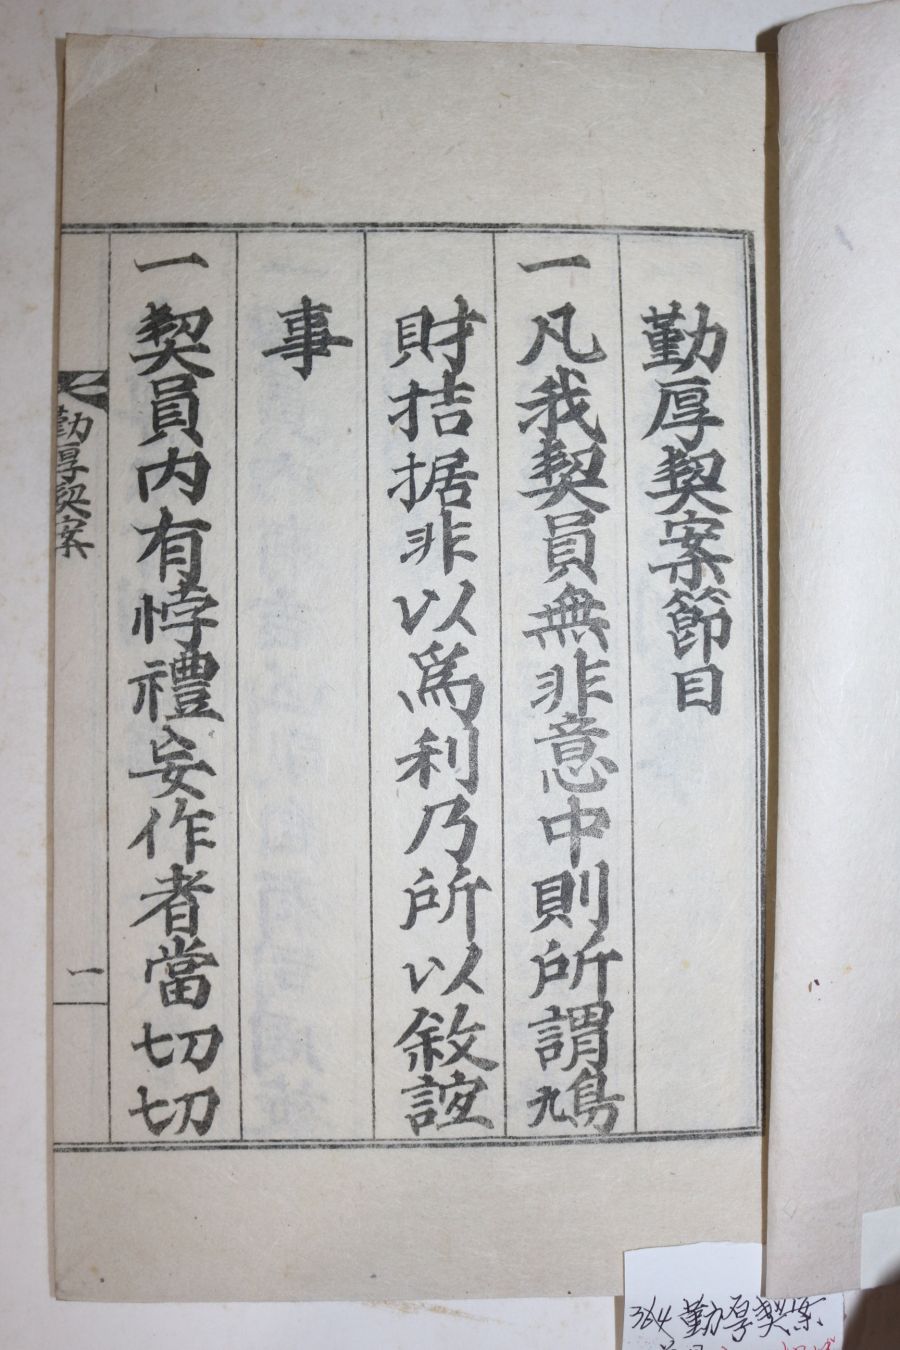 勤厚契案節目
一 凡我契員無非意中則所謂鳩
財拮据非以爲利乃所以敘誼
事
一 契員内有悖禮妄作者當切切
勤厚契案
一
364 勤厚契案